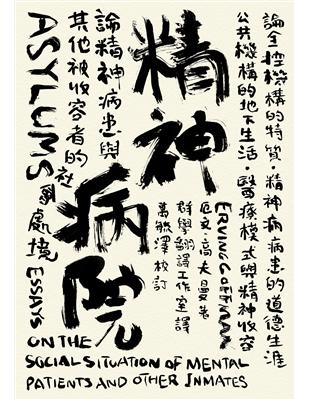 論全控機構的特質・精神病病患的道德生涯
公共機構的地下生活・醫療模式與精神收容
精神
病院
ERVING GOFFMAN
厄文・高夫曼著
群學翻譯工作室譯
萬毓澤校訂
論精神病患與
其他被收容者的社會處境
ASYLUMS
ESSAYS ON THE
SOCIAL SITUATION OF MENTAL
PATIENTS AND OTHER INMATES